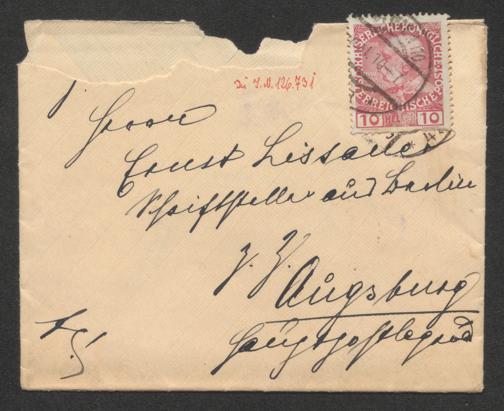 Zu I.N. 126.731
KAISERLICHE KÖNIGLICHE ÖSTERREICHISCHE POST
10 HELLER 10
Herrn
Ernst Lissauer
Schriftsteller aus Berlin
z. Z. Augsburg
Hauptpostlagernd